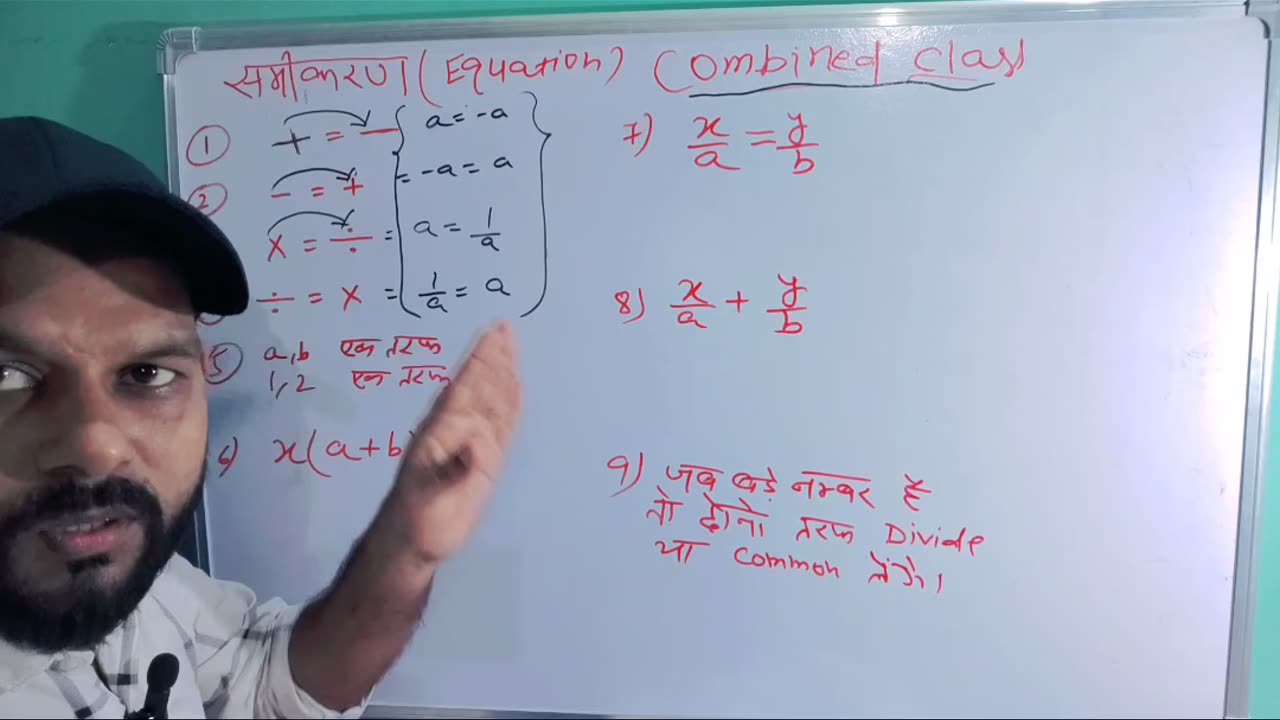 समीकरण (Equation) Combined Class
① + = − { a = -a
② − = + = -a = a
× = ÷ = a = 1/a
÷ = × = 1/a = a
⑤ a,b एक तरफ
1,2 एक तरफ
6) x(a+b)
7) x/a = y/b
8) x/a + y/b
9) जब बड़े नम्बर है
तो दोनो तरफ Divide
या common लेंगे।